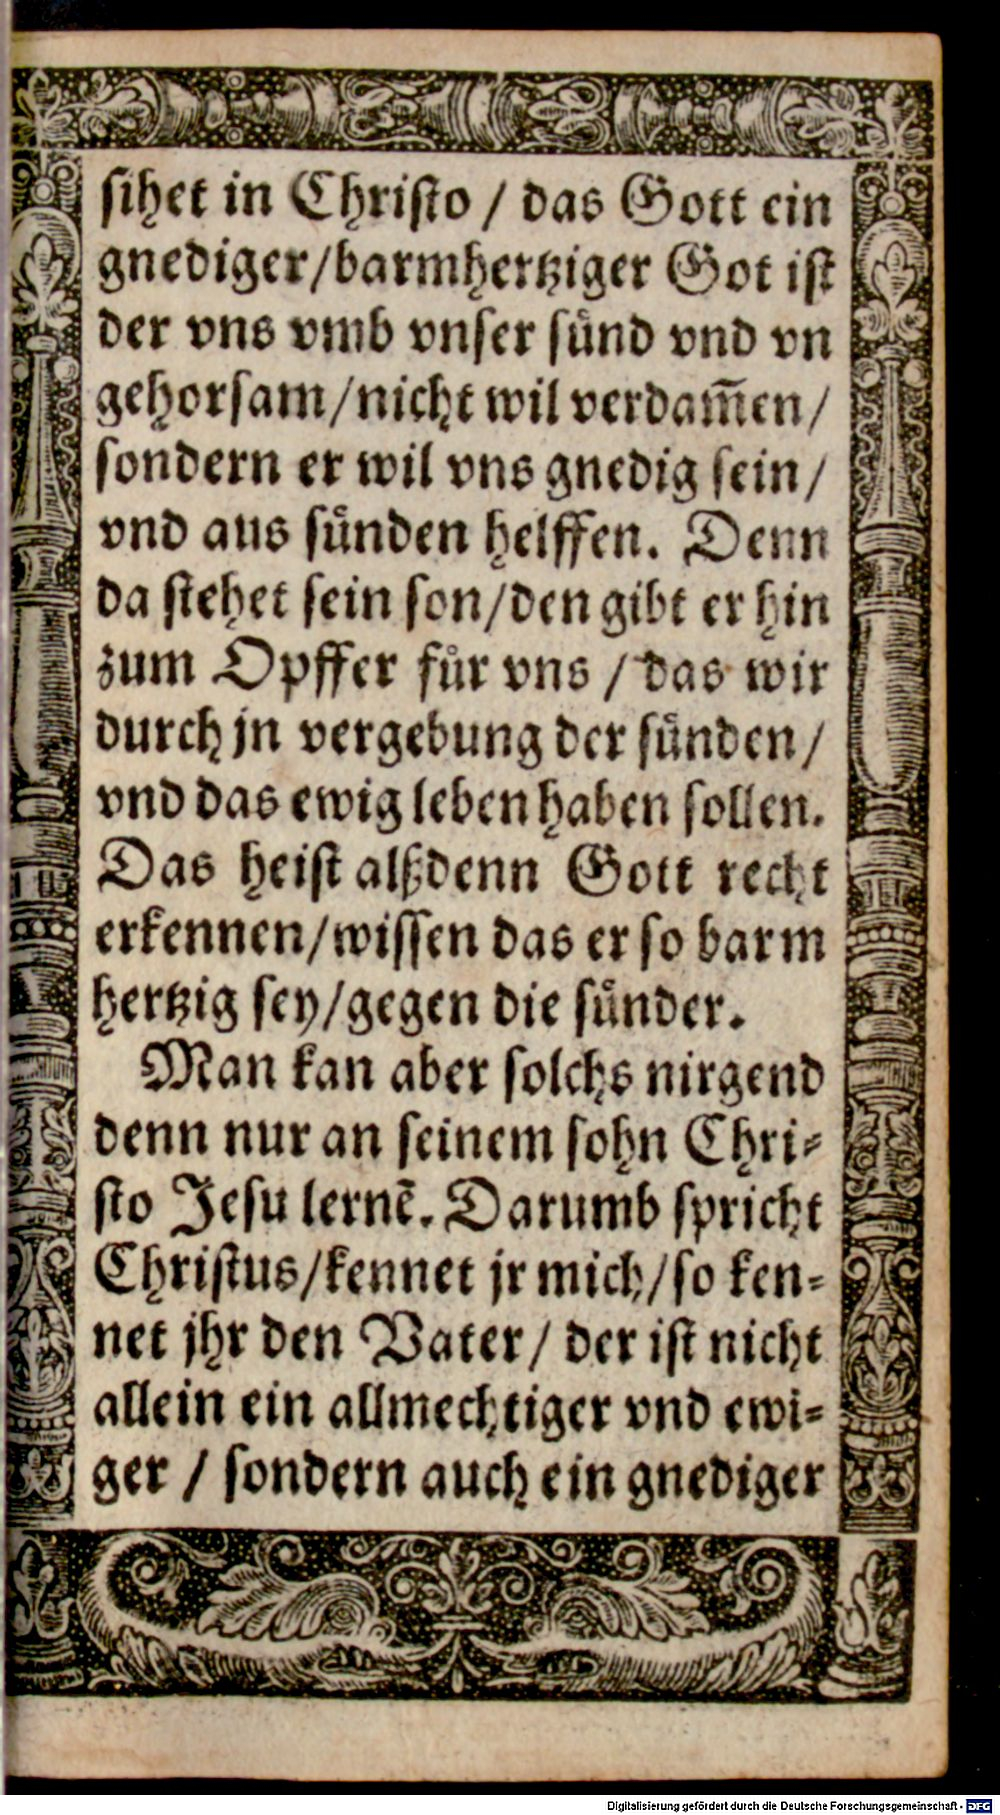 sihet in Christo / das Gott ein
gnediger/barmhertziger Got ist
der vns vmb vnser sünd vnd vn
gehorsam/nicht wil verdam̄en/
sondern er wil vns gnedig sein/
vnd aus sünden helffen. Denn
da stehet sein son/den gibt er hin
zum Opffer für vns / das wir
durch jn vergebung der sünden/
vnd das ewig leben haben sollen.
Das heist alßdenn Gott recht
erkennen/wissen das er so barm
hertzig sey/gegen die sünder.
Man kan aber solchs nirgend
denn nur an seinem sohn Chri⸗
sto Jesu lernē. Darumb spricht
Christus/kennet jr mich/so ken⸗
net jhr den Vater/ der ist nicht
allein ein allmechtiger vnd ewi⸗
ger / sondern auch ein gnediger
Digitalisierung gefördert durch die Deutsche Forschungsgemeinschaft - DFG